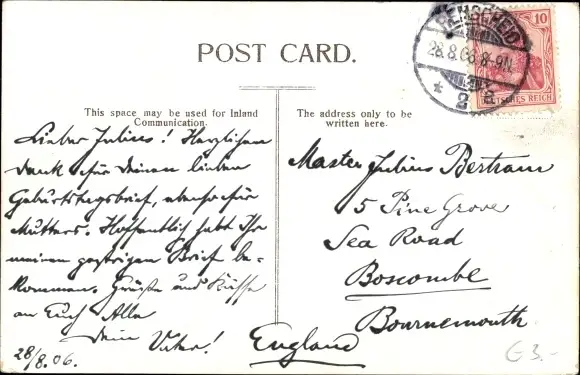 POST CARD.
REMSCHEID
28.8.06.8-9N.
* 2 a
10
DEUTSCHES REICH
This space may be used for Inland
Communication.
The address only to be
written here.
Lieber Julius! Herzlichen
Dank für Deinen lieben
Geburtstagsbrief, ebenso für
Mutters. Hoffentlich habt Ihr
meinen gestrigen Brief be-
kommen. Grüße und Küsse
an Euch Alle
Dein Vater!
28/8.06.
Master Julius Bertram
5 Pine Grove
Sea Road
Boscombe
Bournemouth
England
G3.-